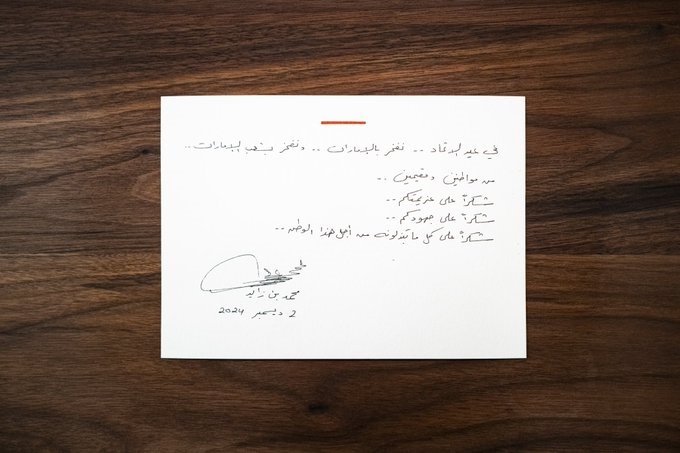 في عيد الاتحاد .. نفخر بالإمارات .. ونفخر بشعب الإمارات..
من مواطنين ومقيمين ..
شكراً على عزيمتكم ..
شكراً على جهودكم ..
شكراً على كل ما تبذلونه من أجل هذا الوطن ..
محمد بن زايد
2 ديسمبر 2024